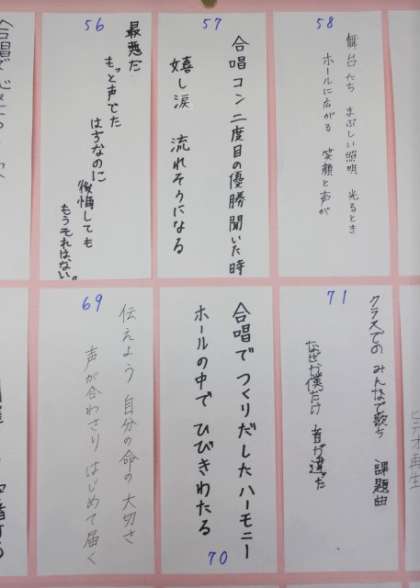 56
最悪だ
もっと声でた
はずなのに
後悔しても
もうそれはない。
57
合唱コン 二度目の優勝 聞いた時
嬉し涙 流れそうになる
58
舞台たち まぶしい照明 光るとき
ホールに広がる 笑顔と声が
69
伝えよう 自分の命の 大切さ
声が合わさり はじめて届く
合唱で つくりだした ハーモニー
ホールの中で ひびきわたる
70
71
クラスでの みんなで歌う 課題曲
なぜか僕だけ 音が違った